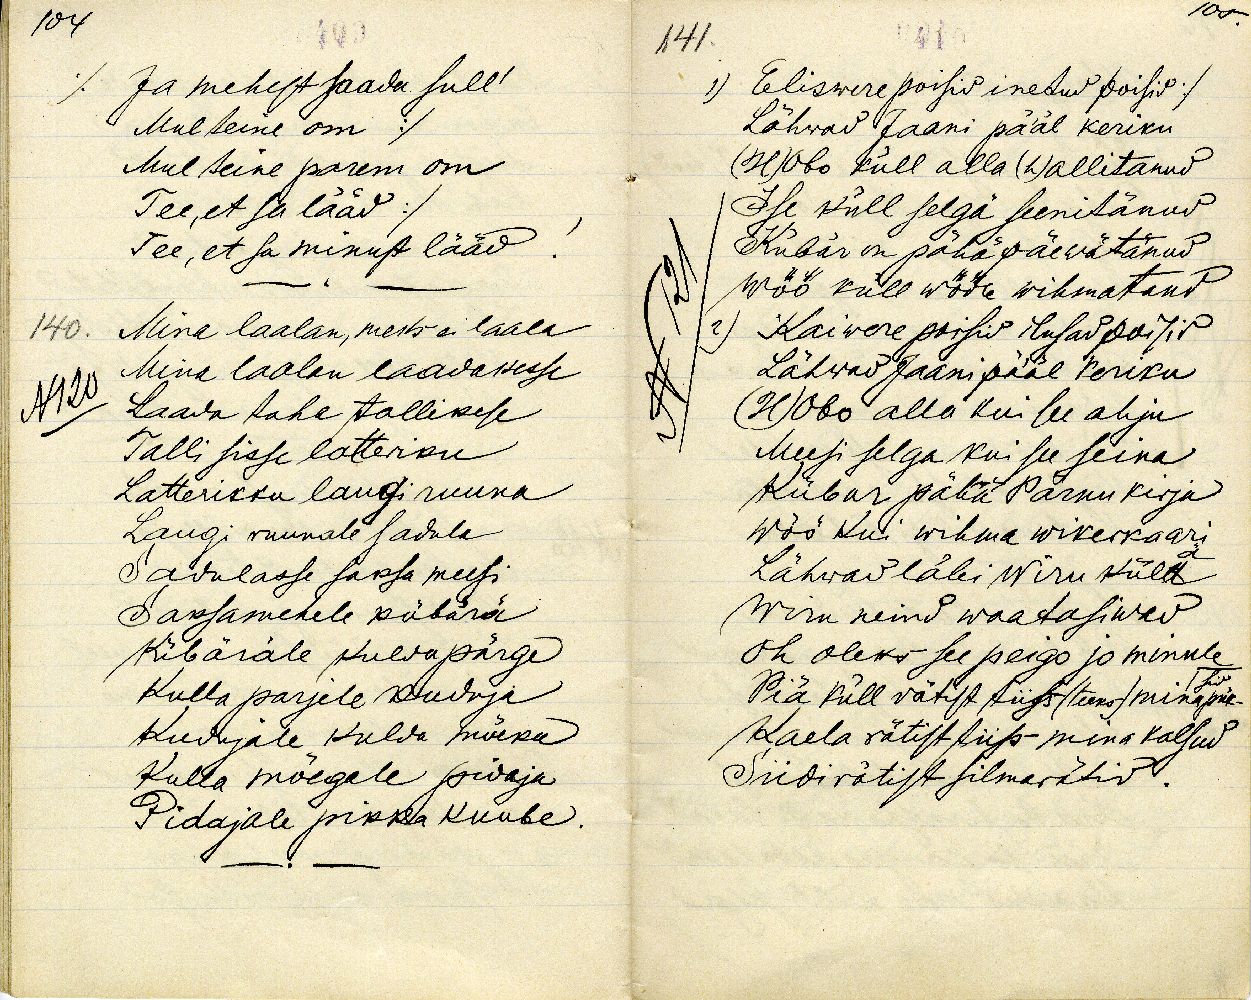 104
:/ Ja mehest saada sull!
Mul teine om :/
Mul teine parem om
Tee, et sa lääd :/
Tee, et sa minust lääd !
140. Mina laalan, meks ei laala
Mina laalan laadakesse
N120
Laada taha tallikese
Talli sisse latteriku
Latterikku laugi ruuna
Laugi ruunale sadula
Sadulasse saksa meesi
Saksamehele kübärä
Kübäräle kuldapärge
Kulla parjele kuduja
Kudujale kulda mõeka
Kulla mõegale pidaja
Pidajale pikka kuube.
105.
141.
1) Eliswere poisid inetud poisid :/
Lähwad Jaani pääl keriku
(H)Obo küll alla (h)allitanud
Ise küll selgä seenitänud
Kübär on pähä päewätänud
Wöö küll wööle wihmatand
N 121
2) Kaiwere poisid ilusad poisid
Lähwad Jaani pääl keriku
(H)Obo alla kui see ahju
Meesi selga kui see seina
Kübar pähä Pärnu kirja
Wöö kui wihma wikerkaari
Lähwad läbi Wiru külä
Wiru neind waatasiwad
Oh oleks see peigo jo minule
Piä küll rätist tiiss (teeks) mina
Kaela rätist tiiss mina kalsud
Siidirätist silmarätid.